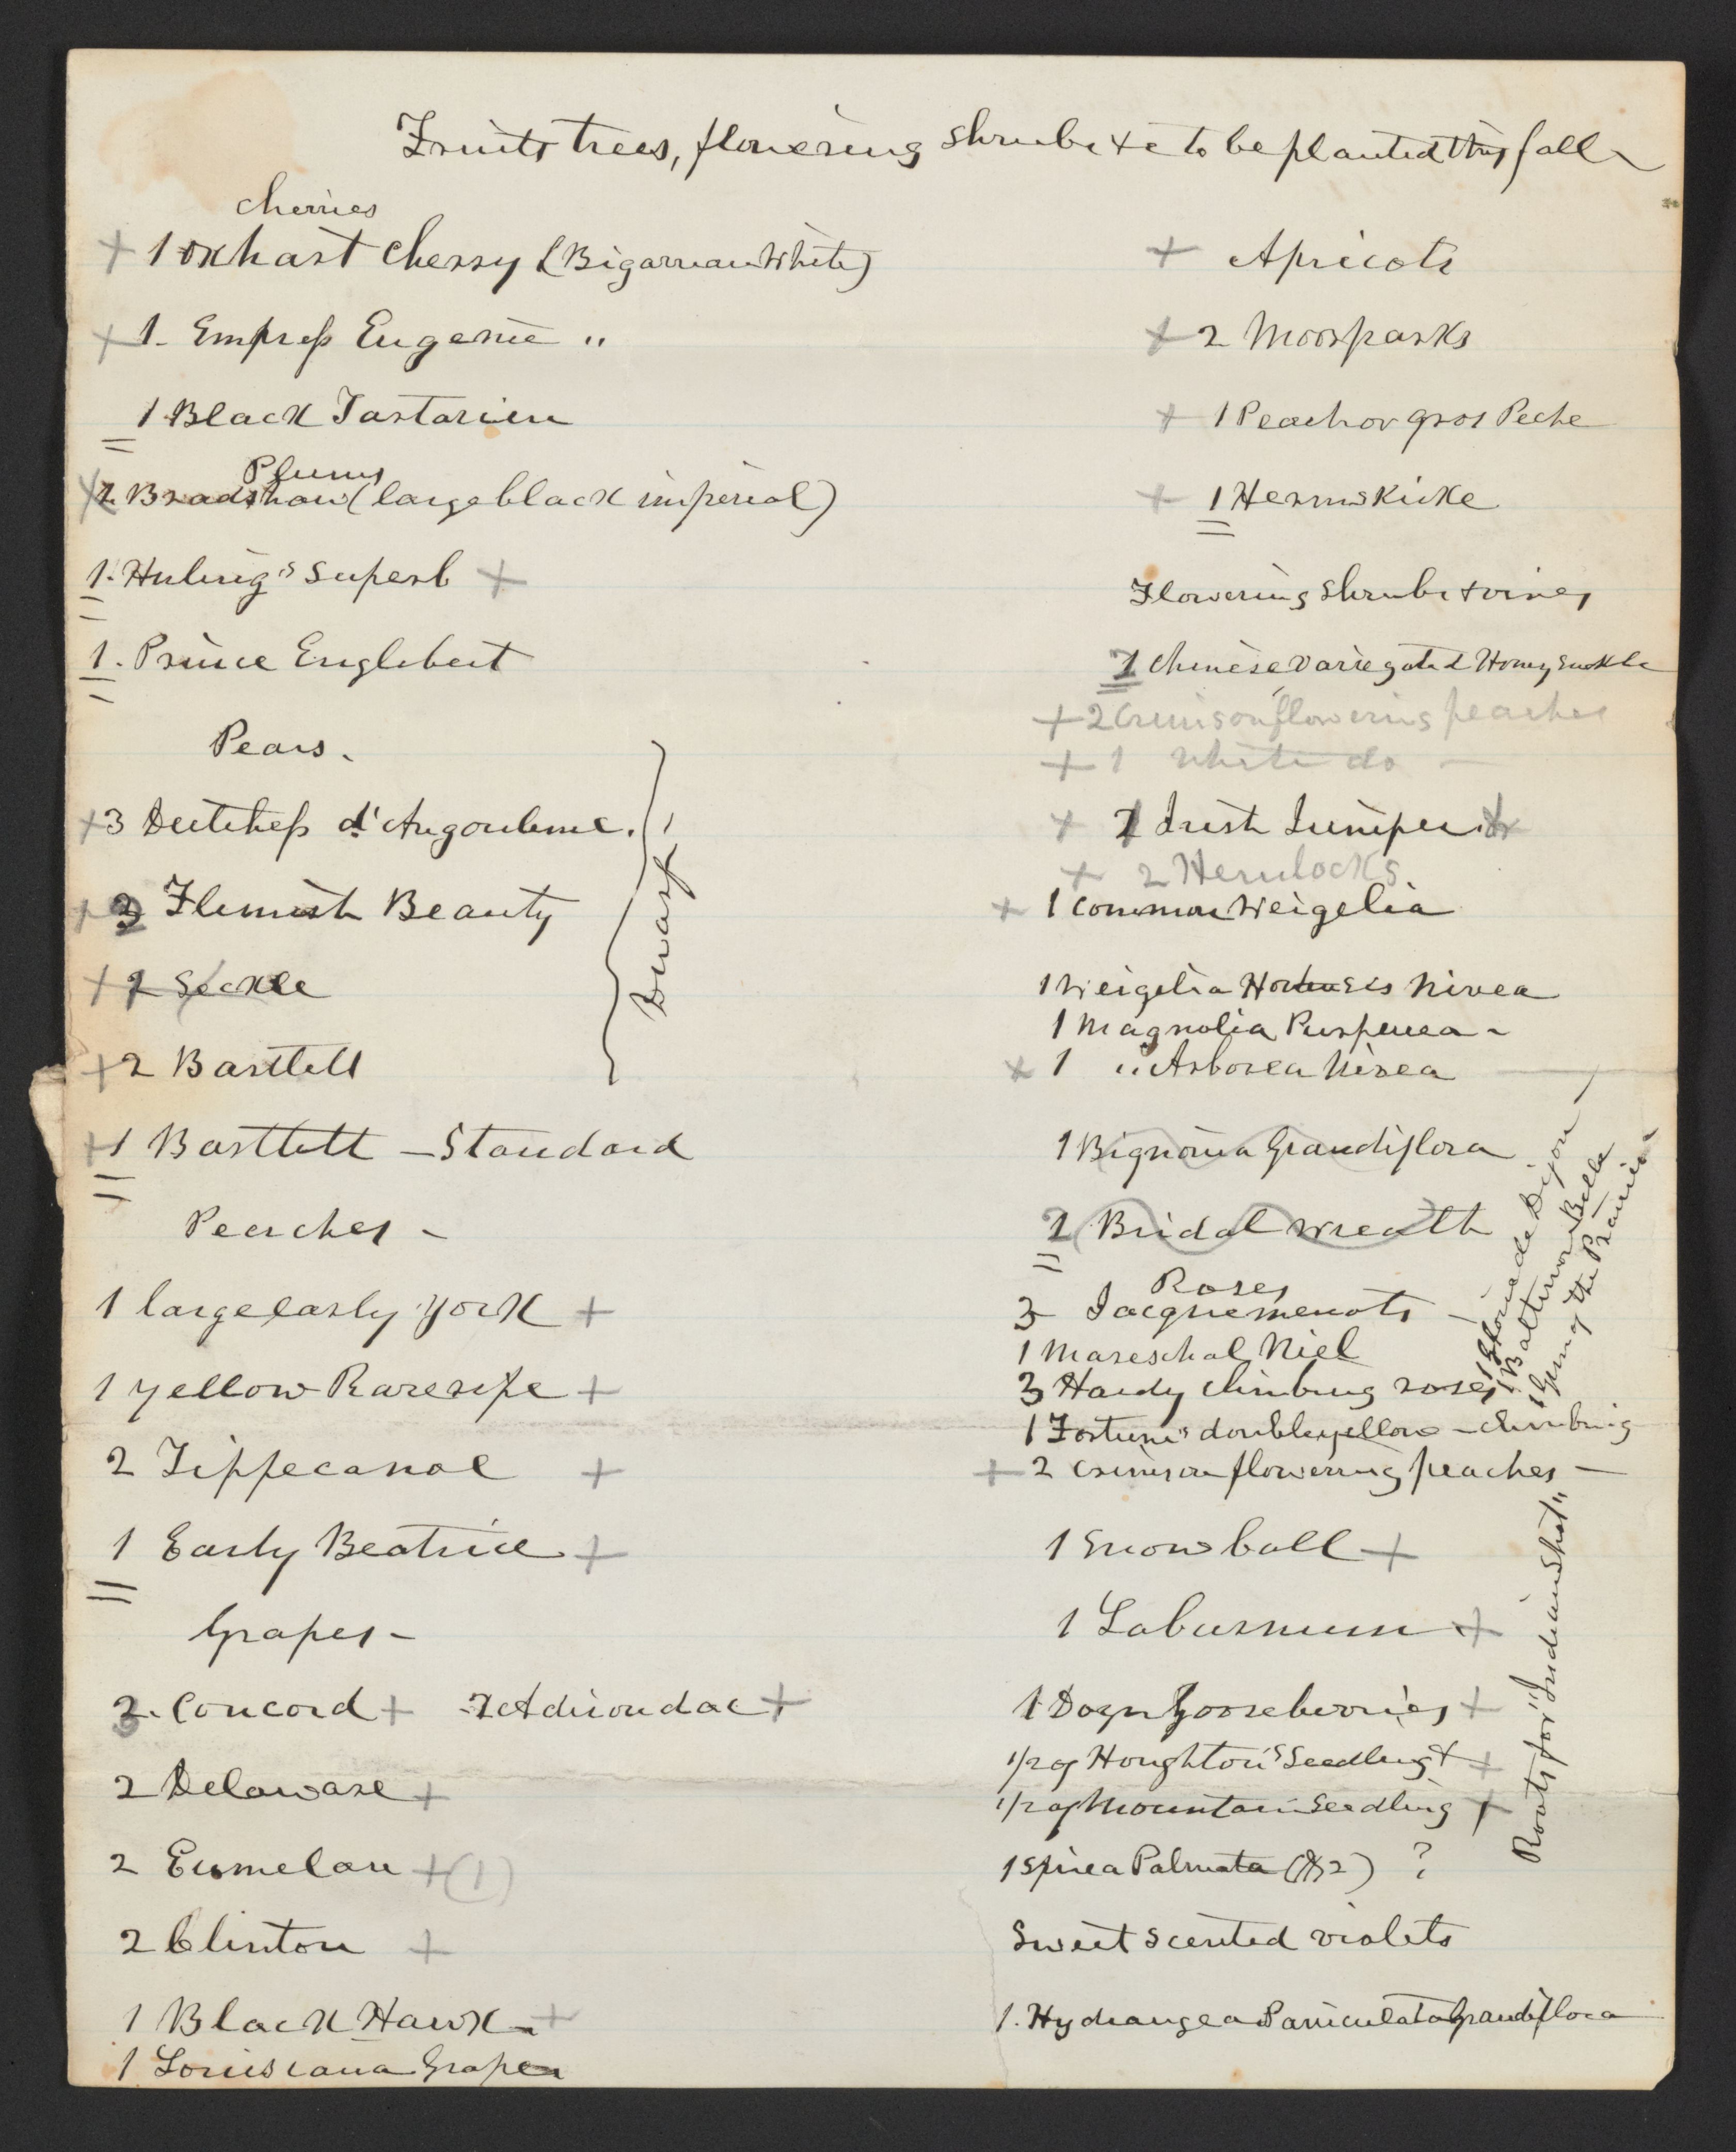 Fruits trees, flowering shrubs &c to be planted this fall
cherries
+ 1 oxhart cherry (Bigarreau White)
+ 1. Empress Eugenie "
1 Black Tartarien
Plums
+ 2 Bradshaw (large black imperial)
1. Huling's Superb +
1. Prince Englebert
Pears.
+ 3 Dutchess d'Angouleme.
+ 3 Flemish Beauty
+ 2 Seckle
+ 2 Bartlett
Dwarf
+ 1 Bartlett - Standard
Peaches -
1 large early York +
1 yellow Rareripe +
2 Tippecanoe +
1 Early Beatrice +
Grapes -
3. Concord + 2 Adirondac +
2 Delaware +
2 Eumelan + (1)
2 Clinton +
1 Black Hawk - +
1 Louisiana Grape
+ Apricots
+ 2 Moorparks
+ 1 Peach or gros Peche
+ 1 Hermskicke
Flowering Shrubs & vines
2 Chinese variegated Honeysuckle
+ 2 Crimson flowering peaches
+ 1 white do -
+ 2 Irish Juniper
+ 2 Hemlocks
+ 1 common Weigelia
1 Weigelia Hortensis Nivea
1 Magnolia Purpurea -
+ 1 " Arborea Nivea
1 Bignonia Grandiflora
2 Bridal wreath
Roses
3 Jacqueminots -
1 Mareschal Niel
3 Hardy climbing roses
1 Gloire de Dijon
1 Baltimore Belle
1 Gem of the Prairies
1 Fortune's double yellow - climbing
+ 2 crimson flowering peaches -
1 Snowball +
1 Laburnum +
1 Dozn Gooseberries +
1/2 of Houghton's Seedling +
1/2 of Mountain Seedling +
1 Spirea Palmata (2) ?
Sweet scented violets
1. Hydrangea Paniculata Grandiflora
Roots for "Indian Shot"